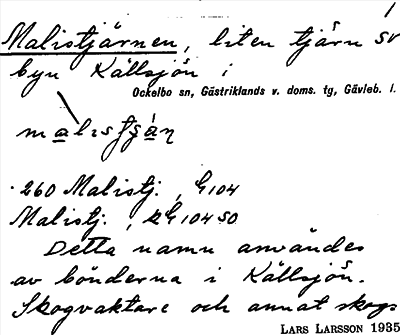 1
Malistjärnen, liten tjärn sv
byn Källsjön i
Ockelbo sn, Gästriklands v. doms. tg, Gävleb. l.
260 Malistj., G 104
Malistj., G 104 SO
Detta namn användes
av bönderna i Källsjön.
Skogvaktare och annat skogs
LARS LARSSON 1935